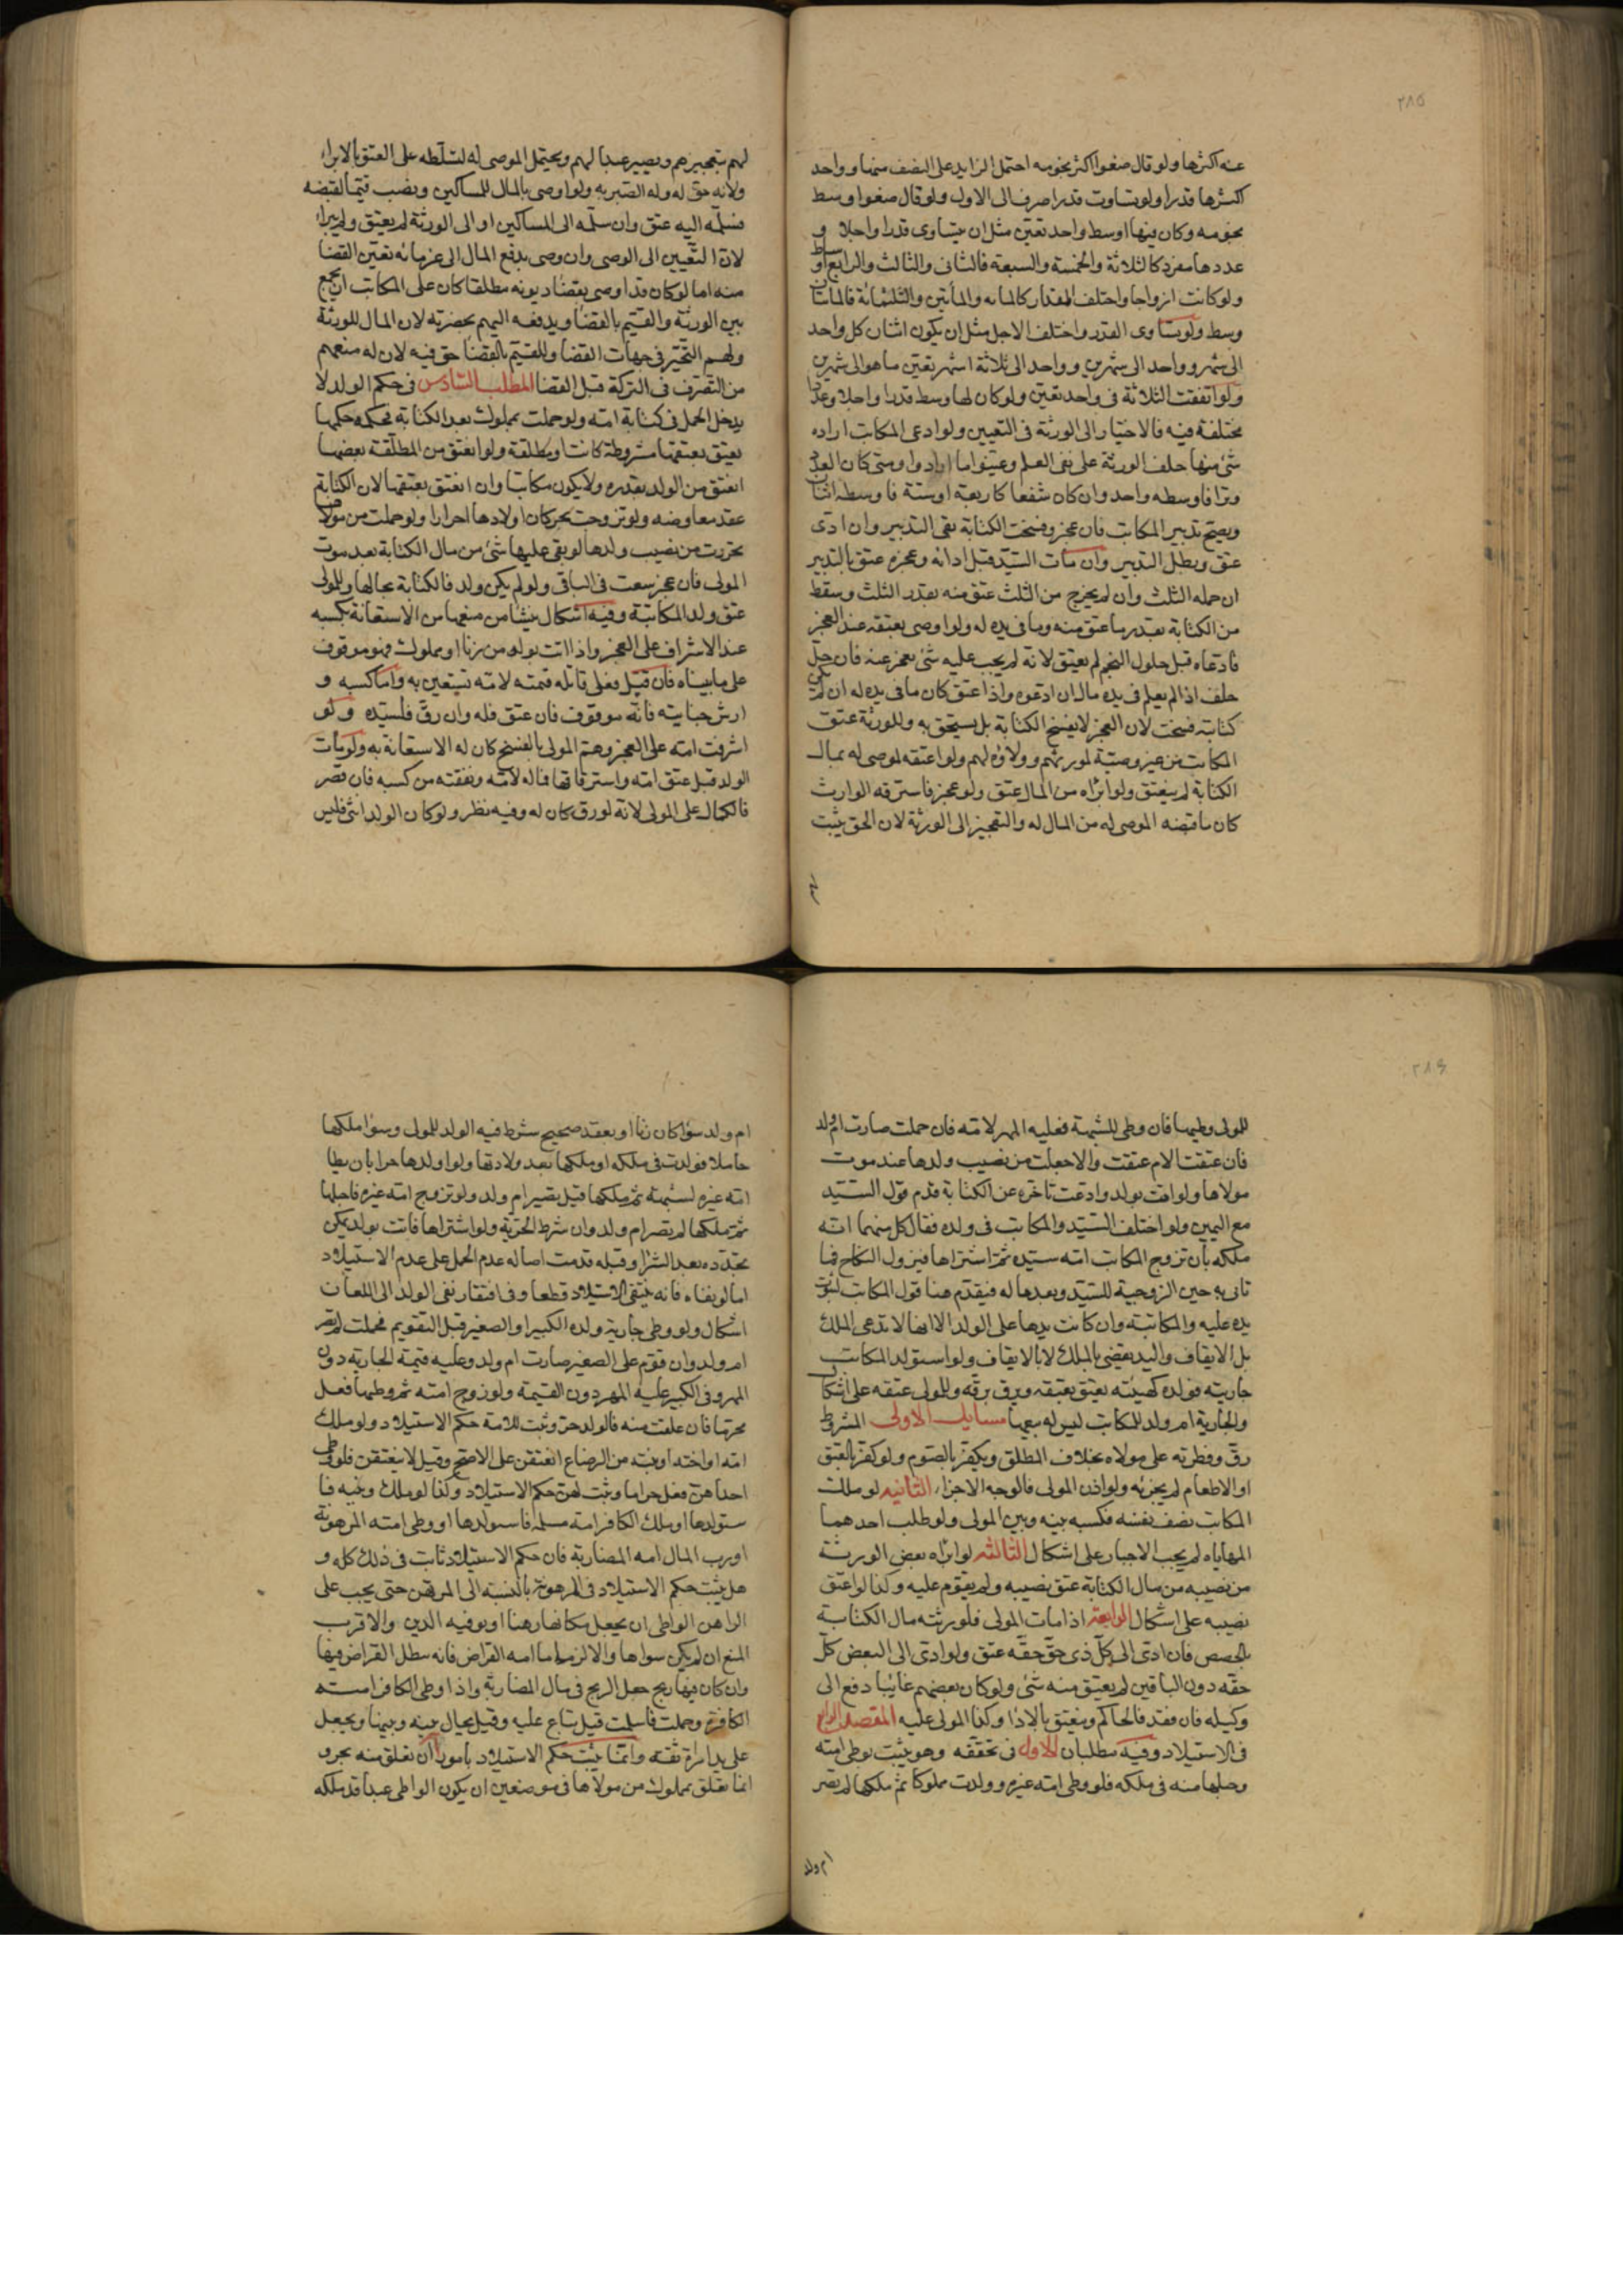 ٢٨٥
عنه اكثرها ولو قال ضعوا اكثر نجومه احتمل الزايد على النصف منها وواحد
اكثرها قدرا ولو تساوت قدرا صرف الى الاول ولو قال ضعوا اوسط
نجومه وكان فيها اوسط واحد تعين مثل ان يتساوى قدرا واجلا و
عددها مفرد كالثلاثة والخمسة والسبعة فالثانى والثالث والرابع اوساط
ولو كانت ازواجا واختلف المقدار كالمايه والمأتين والثلثمائة فالمأتان
وسط ولو تساوى القدر واختلف الاجل مثل ان يكون اثنان كل واحد
الى شهر وواحد الى شهرين وواحد الى ثلاثة اشهر تعين ما هو الى شهرين
ولو اتفقت الثلاثة فى واحد تعين ولو كان لها وسط قدرا واجلا وعددا
مختلفة فيه فالاختيار الى الورثة فى التعيين ولو ادعى المكاتب اراده
شئ منها حلف الورثة على نفى العلم وعينوا ما ارادوا ومتى كان العدد
وترا فاوسطه واحد وان كان شفعا كاربعة او ستة فاوسطه اثنان
ويصح تدبير المكاتب فان عجز وفسخت الكتابة بقى التدبير وان ادى
عتق وبطل التدبير وان مات السيد قبل ادائه وعجزه عتق بالتدبير
ان حمله الثلث وان لم يخرج من الثلث عتق منه بقدر الثلث وسقط
من الكتابة بقدر ما عتق منه وما فى يده له ولو اوصى بعتقه عند العجز
فادعاه قبل حلول النجم لم يعتق لانه لم يجب عليه شئ يعجز عنه فان حل
حلف اذا لم يعلم فى يده مال ان ادعوه واذا عتق كان ما فى يده له ان لم يكن
كتابته فسخت لان العجز لا يفسخ الكتابة بل يستحق به وللورثة عتق
المكاتب من غير وصية لمورثهم وولاؤه لهم ولو اعتقه لموصى له بمال
الكتابة لم ينعتق ولو ابراه من المال عتق ولو عجز فاسترقه الوارث
كان ما قبضه الموصى له من المال له والتعجيز الى الورثة لان الحق يثبت
لهم بتعجيزهم ويصير عبدا لهم ويحتمل الموصى له لتسلطه على العتق بالابراء
ولانه حق له وله الصبر به ولو اوصى بالمال للمساكين ونصب قيما لقبضه
فسلمه اليه عتق وان سلمه الى المساكين او الى الورثة لم يعتق ولم يبرا
لان التعيين الى الوصى وان وصى بدفع المال الى غرمائه تعين القضا
منه اما لو كان قد اوصى بقضا ديونه مطلقا كان على المكاتب ان يجمع
بين الورثة والقيم بالقضا ويدفعه اليهم بحضرته لان المال للورثة
ولهم التخير فى جهات القضا وللقيم بالقضا حق فيه لان له منعهم
من التصرف فى التركة قبل القضا المطلب السادس فى حكم الولد لا
يدخل الحمل فى كتابة امه ولو حملت بمملوك بعد الكتابة فحكمه حكمها
يعتق بعتقها مشروطة كانت او مطلقة ولو انعتق من المطلقة بعضها
انعتق من الولد بقدره ولا يكون مكاتبا وان انعتق بعتقها لان الكتابة
عقد معاوضه ولو تزوجت بحر كان اولادها احرارا ولو حملت من مولاها
تحررت من نصيب ولدها لو بقى عليها شئ من مال الكتابة بعد موت
المولى فان عجز سعت فى الباقى ولو لم يكن ولد فالكتابة بحالها وللمولى
عتق ولد المكاتبة وفيه اشكال ينشا من منعها من الاستعانة بكسبه
عند الاشراف على العجز واذا اتت بولد من زنا او مملوك فهو موقوف
على ما بيناه فان قتل فعلى قاتله قيمته لامه تستعين به واما كسبه و
ارش جنايته فانه موقوف فان عتق فله وان رق فلسيده ولو
اشرفت امه على العجز وهم المولى بالفسخ كان له الاستعانة به ولو مات
الولد قبل عتق امه واسترقاقها فماله لامه ونفقته من كسبه فان قصر
فالكمال على المولى لانه لو رق كان له وفيه نظر ولو كان الولد انثى فليس
٢٨٦
للمولى وطيها فان وطى للشبهة فعليه المهر لامه فان حملت صارت ام ولد
فان عتقت الام عتقت والا جعلت من نصيب ولدها عند موت
مولاها ولو اتت بولد وادعت تاخره عن الكتابة قدم قول السيد
مع اليمين ولو اختلف السيد والمكاتب فى ولده فقال كل منهما انه
ملكه بان تزوج المكاتب امة سيده ثم اشتراها فيزول النكاح فما
تاتى به حين الزوجية للسيد وبعدها له فيقدم هنا قول المكاتب لثبوت
يده عليه والمكاتبة وان كانت يدها على الولد الا انها لا تدعى الملك
بل الايقاف واليد يقضى بالملك لا بالايقاف ولو استولد المكاتب
جاريته فولده كهيئته يعتق بعتقه ويرق برقه وللمولى عتقه على اشكال
والجارية ام ولد للمكاتب ليس له بيعها مسايل الاولى المشروط
رق وفطرته على مولاه بخلاف المطلق ويكفر بالصوم ولو كفر بالعتق
او الاطعام لم يجزئه ولو اذن المولى فالوجه الاجزاء الثانيه لو ملك
المكاتب نصف نفسه فكسبه بينه وبين المولى ولو طلب احدهما
المهاياه لم يجب الاجبار على اشكال الثالثه لو ابراه بعض الورثة
من نصيبه من مال الكتابة عتق نصيبه ولم يقوم عليه وكذا لو اعتق
نصيبه على اشكال الرابعة اذا مات المولى فلورثته مال الكتابة
بالحصص فان ادى الى كل ذى حق حقه عتق ولو ادى الى البعض كل
حقه دون الباقين لم يعتق منه شئ ولو كان بعضهم غايبا دفع الى
وكيله فان فقد فالحاكم وينعتق بالادا وكذا المولى عليه المقصد الرابع
فى الاستيلاد وفيه مطلبان الاول فى تحققه وهو يثبت بوطى امته
وحبلها منه فى ملكه فلو وطى امة غيره وولدت مملوكا ثم ملكها لم تصر
ام ولد
ام ولد سوا كان زنا او بعقد صحيح شرط فيه الولد للمولى وسوا ملكها
حاملا فولدت فى ملكه او ملكها بعد ولادتها ولو اولدها حرا بان يطا
امة غيره لشبهة ثم ملكها قيل تصير ام ولد ولو تزوج امة غيره فاحبلها
ثم تملكها لم تصر ام ولد وان شرط الحرية ولو اشتراها فاتت بولد يمكن
تجدده بعد الشرا وقبله قدمت اصالة عدم الحمل على عدم الاستيلاد
اما لو نفاه فانه ينتفى الاستيلاد قطعا وفى افتقار نفى الولد الى اللعان
اشكال ولو وطى جارية ولده الكبير او الصغير قبل التقويم فحملت لم تصر
ام ولد وان قوم على الصغير صارت ام ولد وعليه قيمة الجارية دون
المهر وفى الكبير عليه المهر دون القيمة ولو زوج امته ثم وطيها فعل
محرما فان علقت منه فالولد حر وثبت للامة حكم الاستيلاد ولو ملك
امه او اخته او بنته من الرضاع انعتقن على الاصح وقيل لا ينعتقن فلو وطى
احداهن فعل حراما وثبت لهن حكم الاستيلاد وكذا لو ملك وثنيه فا
ستولدها او ملك الكافر امة مسلمه فاستولدها او وطى امته المرهونة
او رب المال امه المضاربة فان حكم الاستيلاد ثابت فى ذلك كله و
هل يثبت حكم الاستيلاد فى المرهونة بالنسبة الى المرتهن حتى يجب على
الراهن الواطى ان يجعل مكانها رهنا او توفيه الدين والاقرب
المنع ان لم يكن سواها والا الزم اما امه القراض فانه يبطل القراض فيها
وان كان فيها ربح جعل الربح فى مال المضاربة واذا وطى الكافر امته
الكافرة وحملت فاسلمت قيل تباع عليه وقيل يحال بينه وبينها ويجعل
على يد امراة ثقة وانما يثبت حكم الاستيلاد بامور ا ان تعلق منه بحر و
انما تعلق بمملوك من مولاها فى موضعين ان يكون الواطى عبدا قد ملكه